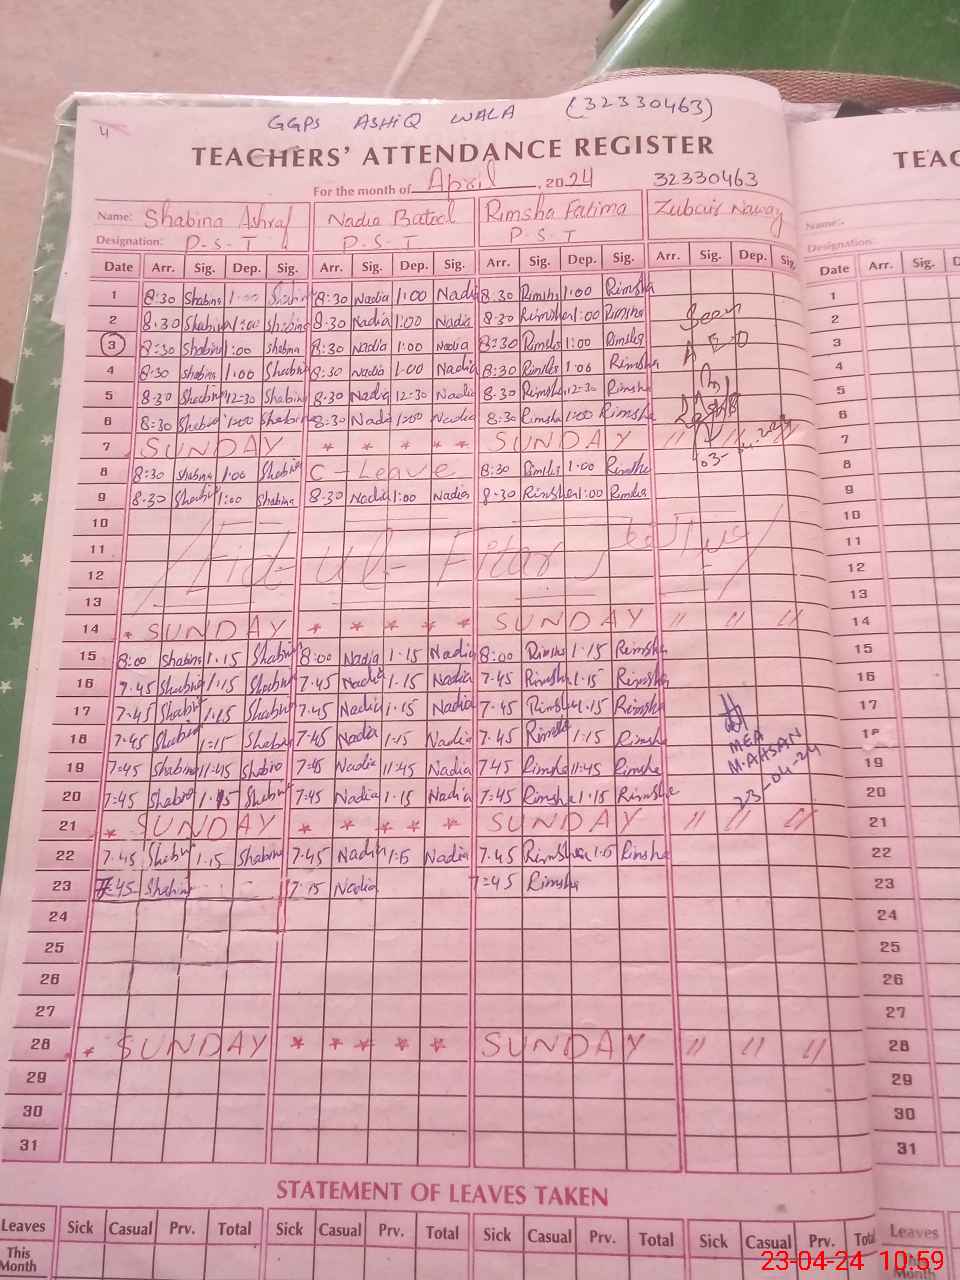 4
GGPS ASHIQ WALA (32330463)
TEACHERS' ATTENDANCE REGISTER
TEAC
For the month of April, 2024 32330463
Name: Shabina Ashraf Nadia Batool Rimsha Fatima Zubair Nawaz
Name:-
Designation: P-S-T P-S-T P-S-T
Designation:
Date Arr. Sig. Dep. Sig. Arr. Sig. Dep. Sig. Arr. Sig. Dep. Sig. Arr. Sig. Dep. Sig. Date Arr. Sig. D
1 8:30 Shabina 1:00 Shabina 8:30 Nadia 1:00 Nadia 8:30 Rimsha 1:00 Rimsha 1
2 8:30 Shabina 1:00 Shabina 8:30 Nadia 1:00 Nadia 8:30 Rimsha 1:00 Rimsha Seen 2
3 8:30 Shabina 1:00 Shabina 8:30 Nadia 1:00 Nadia 8:30 Rimsha 1:00 Rimsha 3
4 8:30 Shabina 1:00 Shabina 8:30 Nadia 1:00 Nadia 8:30 Rimsha 1:00 Rimsha 4
5 8:30 Shabina 12:30 Shabina 8:30 Nadia 12:30 Nadia 8:30 Rimsha 12:30 Rimsha 5
6 8:30 Shabina 1:00 Shabina 8:30 Nadia 1:00 Nadia 8:30 Rimsha 1:00 Rimsha 6
7 SUNDAY * * * * SUNDAY // // // 7
8 8:30 Shabina 1:00 Shabina C-Leave 8:30 Rimsha 1:00 Rimsha 8
9 8:30 Shabina 1:00 Shabina 8:30 Nadia 1:00 Nadia 8:30 Rimsha 1:00 Rimsha 9
10 10
11 Eid-ul-Fitar 11
12 12
13 13
14 * SUNDAY * * * * * SUNDAY // // // 14
15 8:00 Shabina 1:15 Shabina 8:00 Nadia 1:15 Nadia 8:00 Rimsha 1:15 Rimsha 15
16 7:45 Shabina 1:15 Shabina 7:45 Nadia 1:15 Nadia 7:45 Rimsha 1:15 Rimsha 16
17 7:45 Shabina 1:15 Shabina 7:45 Nadia 1:15 Nadia 7:45 Rimsha 1:15 Rimsha 17
18 7:45 Shabina 1:15 Shabina 7:45 Nadia 1:15 Nadia 7:45 Rimsha 1:15 Rimsha MEA 18
19 7:45 Shabina 11:45 Shabina 7:45 Nadia 11:45 Nadia 7:45 Rimsha 11:45 Rimsha M.AHSAN 19
20 7:45 Shabina 1:15 Shabina 7:45 Nadia 1:15 Nadia 7:45 Rimsha 1:15 Rimsha 23-04-24 20
21 * SUNDAY * * * * * SUNDAY // // // 21
22 7:45 Shabina 1:15 Shabina 7:45 Nadia 1:15 Nadia 7:45 Rimsha 1:15 Rimsha 22
23 7:45 Shabina 7:15 Nadia 7:45 Rimsha 23
24 24
25 25
26 26
27 27
28 * SUNDAY * * * * * SUNDAY // // // 28
29 29
30 30
31 31
STATEMENT OF LEAVES TAKEN
Leaves Sick Casual Prv. Total Sick Casual Prv. Total Sick Casual Prv. Total Sick Casual Prv. Total Leaves
This Month
This Month
23-04-24 10:59